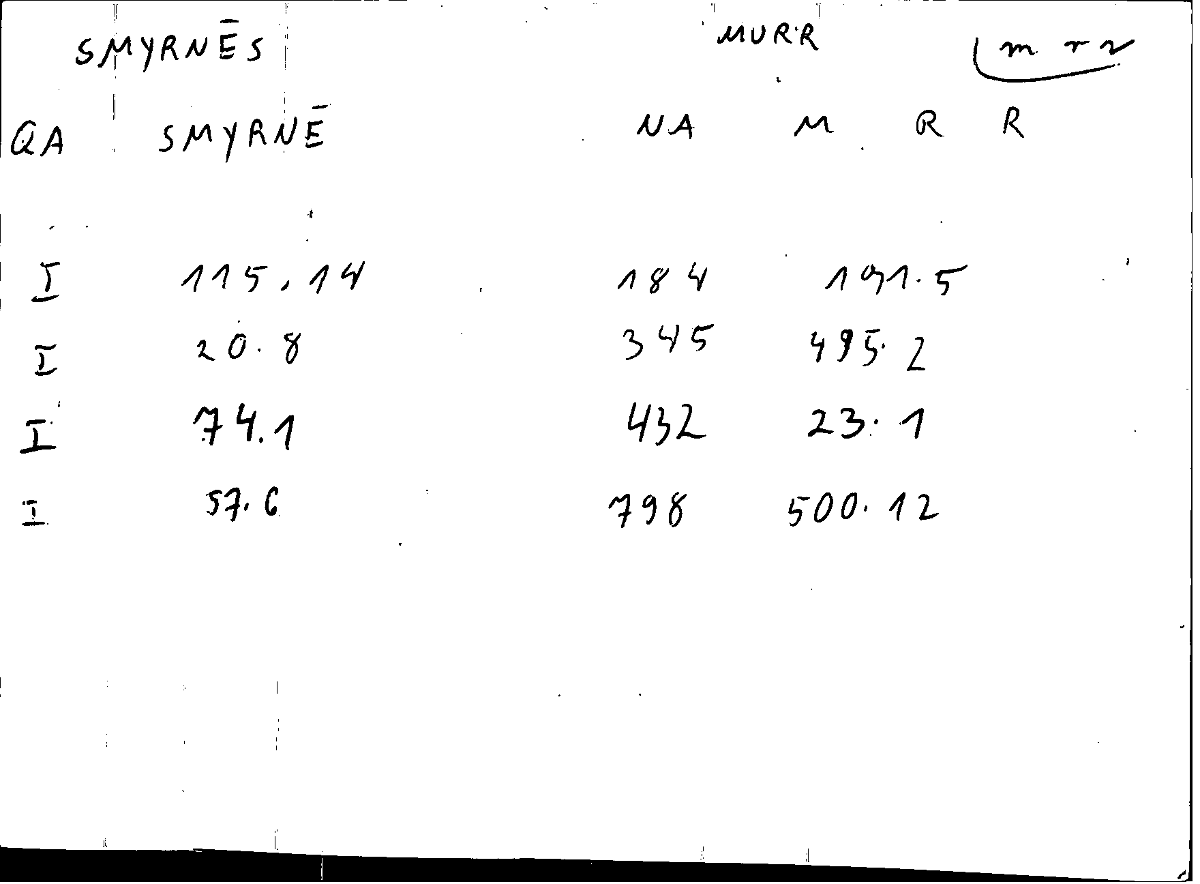 SMYRNĒS MURR m r r
QA SMYRNĒ NA M R R
I 115.14 184 191.5
I 20.8 345 495.2
I 74.1 432 23.1
I 57.6 798 500.12